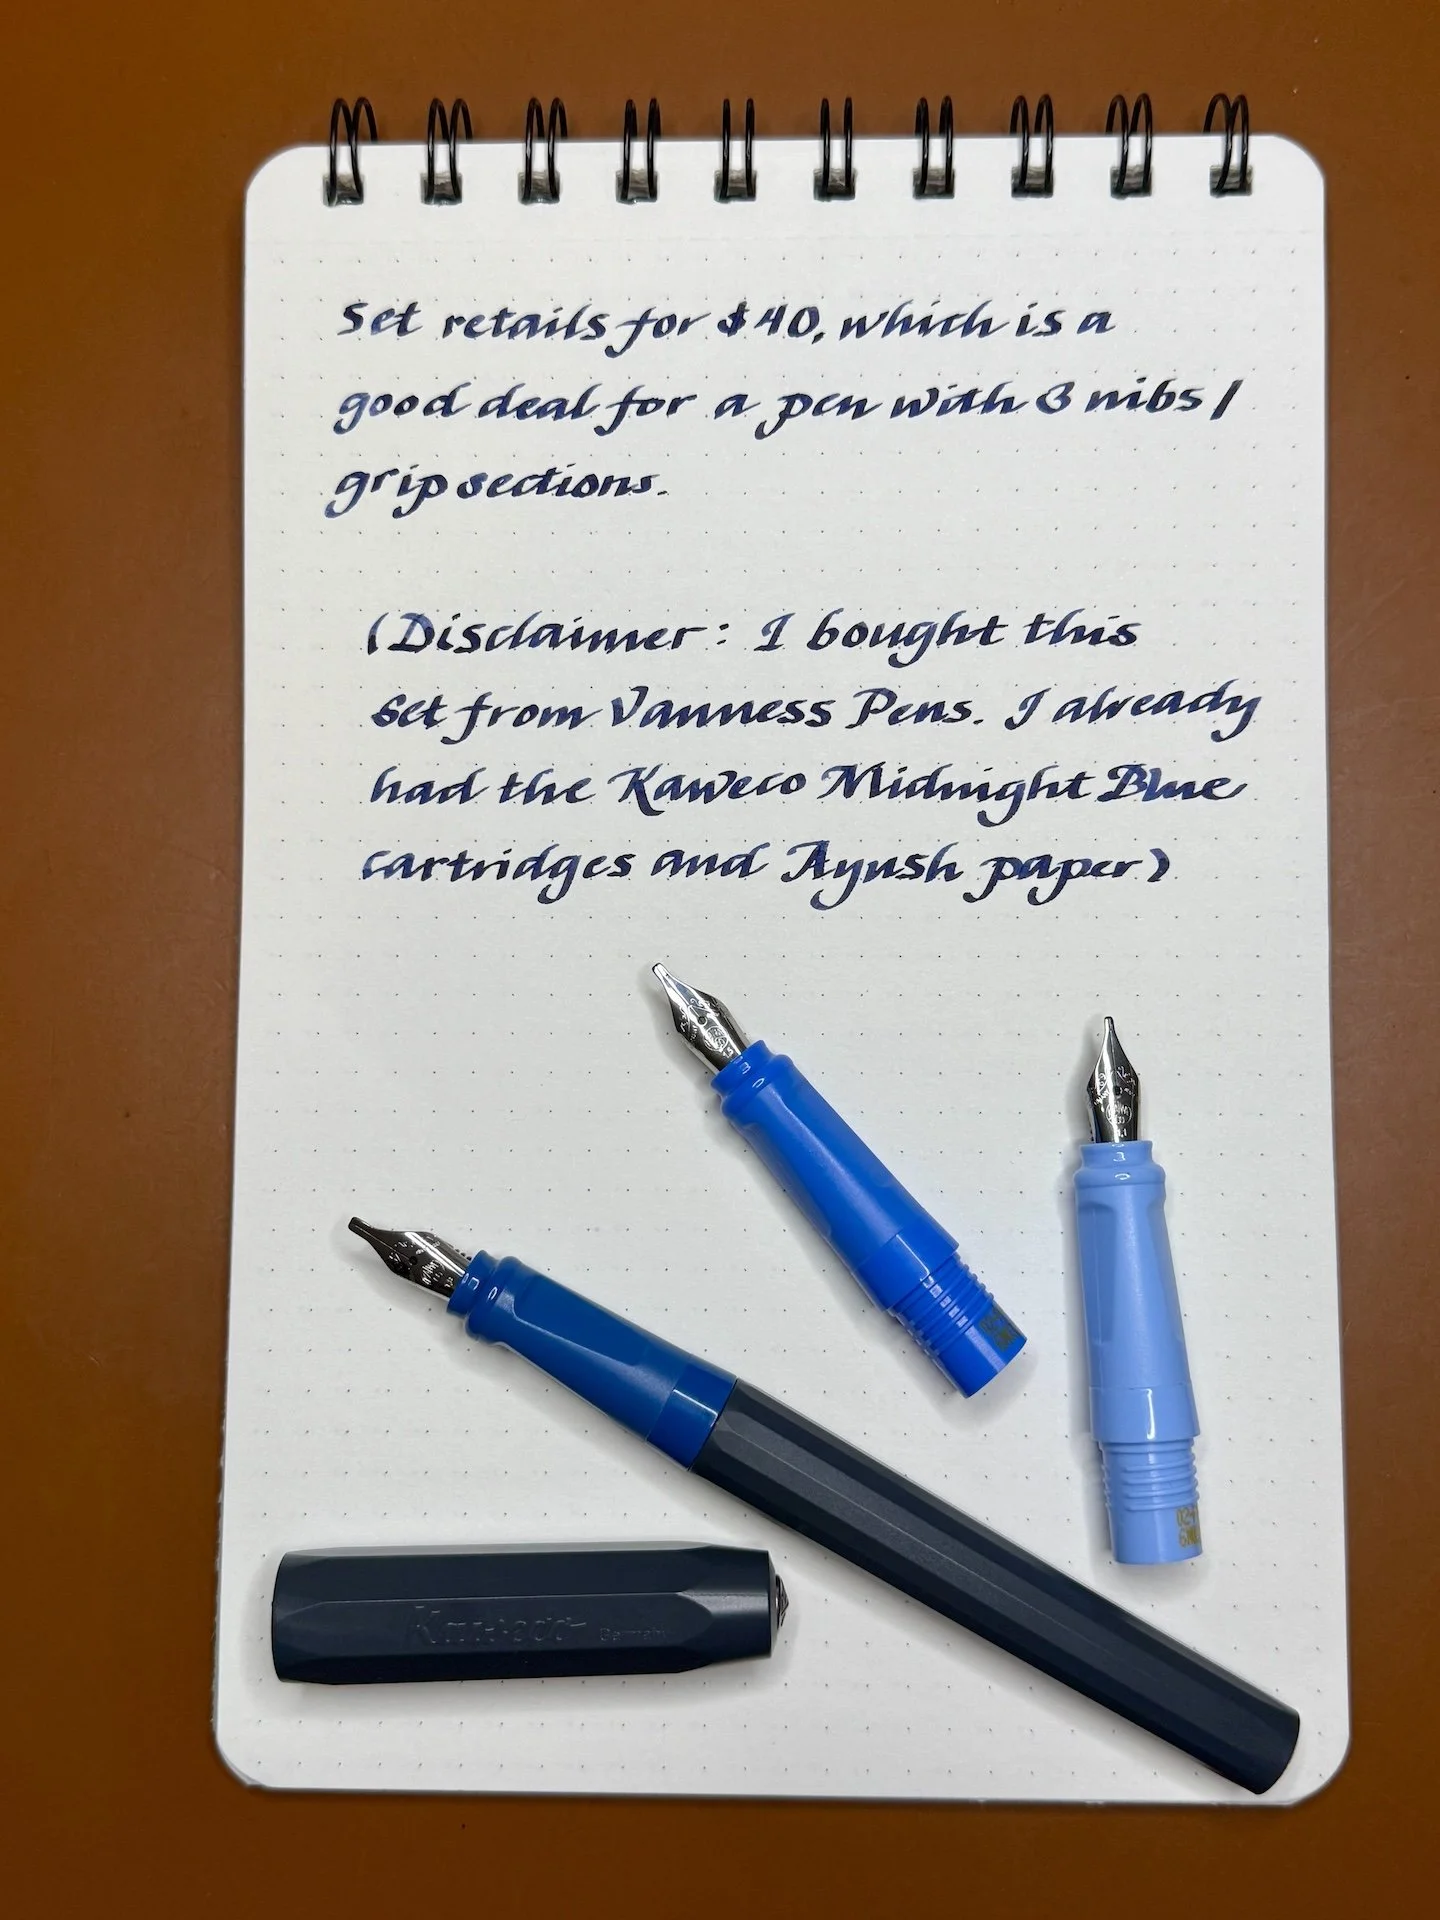 Set retails for $40, which is a
good deal for a pen with 3 nibs/
grip sections.
(Disclaimer: I bought this
set from Vanness Pens. I already
had the Kaweco Midnight Blue
cartridges and Ayush paper)
Kaweco Germany